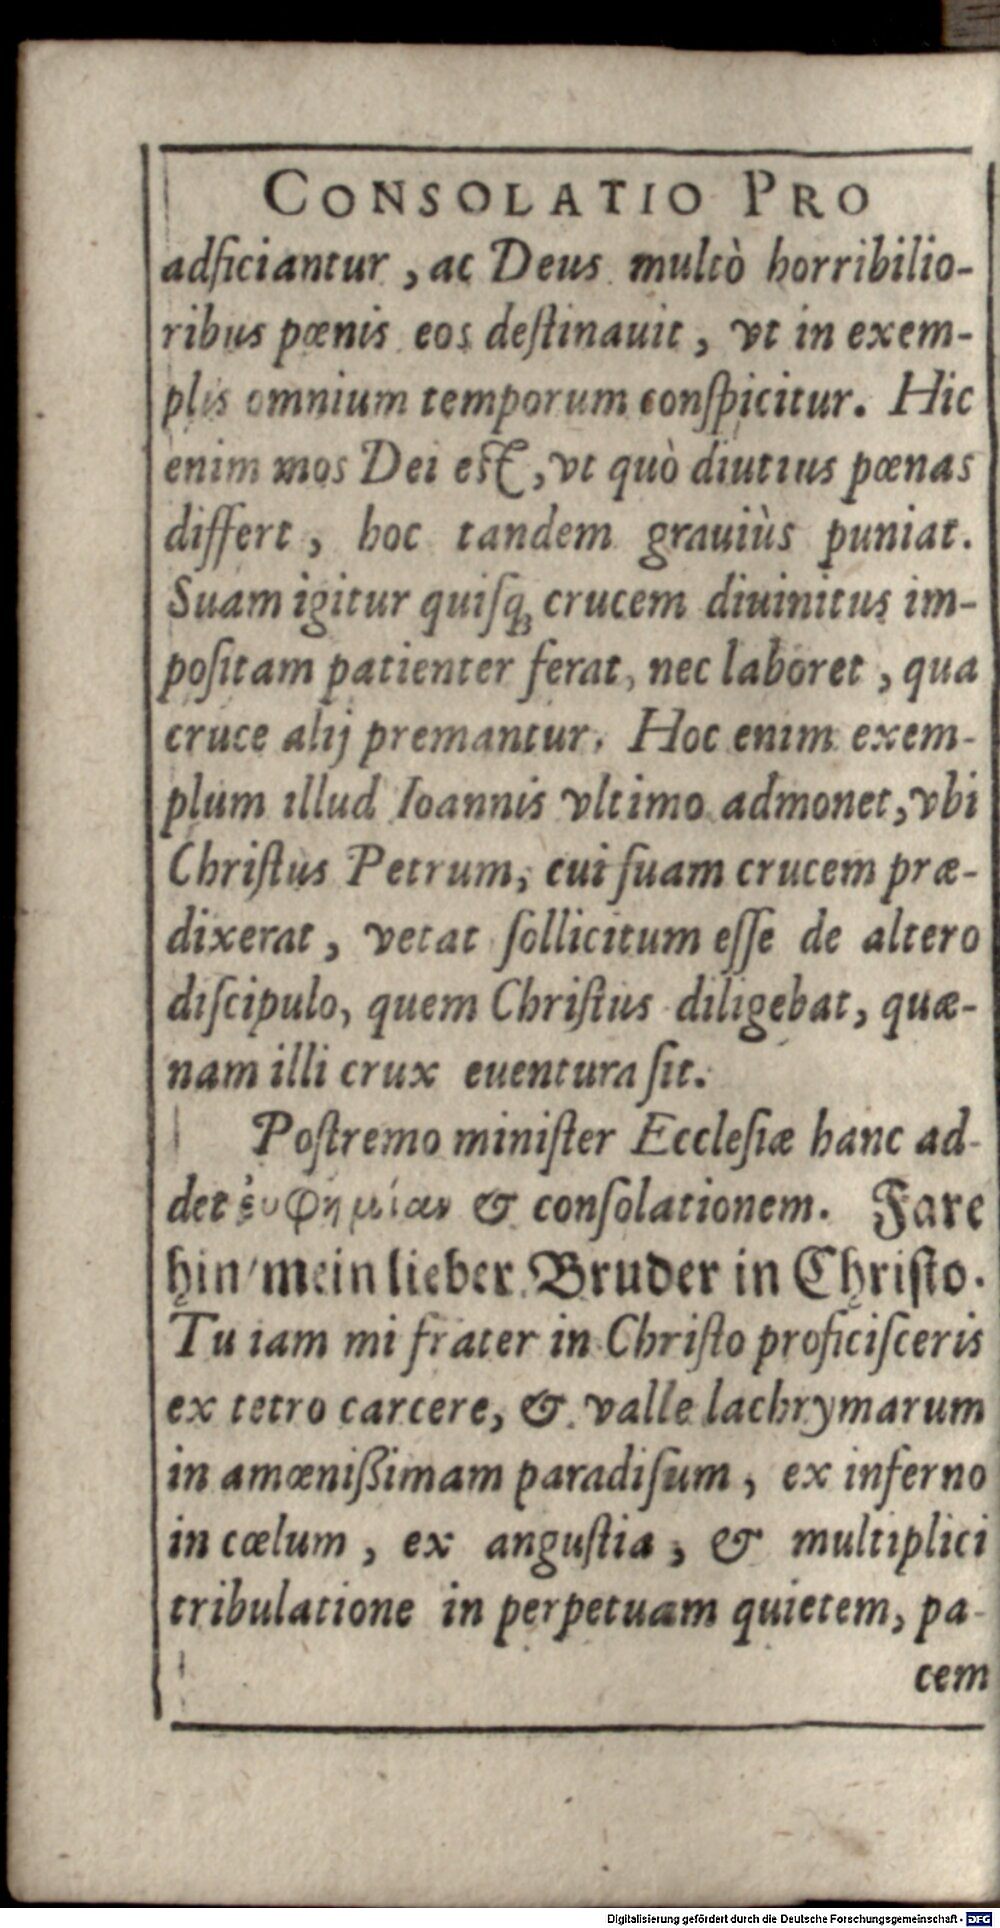 CONSOLATIO PRO
adficiantur, ac Deus multò horribilio-
ribus pœnis eos deſtinauit, vt in exem-
plis omnium temporum conſpicitur. Hic
enim mos Dei eſt, vt quò diutius pœnas
differt, hoc tandem grauiùs puniat.
Suam igitur quiſq; crucem diuinitus im-
poſitam patienter ferat, nec laboret, qua
cruce alij premantur. Hoc enim exem-
plum illud Ioannis vltimo admonet, vbi
Chriſtus Petrum, cui ſuam crucem præ-
dixerat, vetat ſollicitum eſſe de altero
diſcipulo, quem Chriſtus diligebat, quæ-
nam illi crux euentura ſit.
Poſtremo miniſter Eccleſiæ hanc ad-
det ἐυφημίαν & conſolationem. Fare
hin/ mein lieber Bruder in Chriſto.
Tu iam mi frater in Chriſto proficiſceris
ex tetro carcere, & valle lachrymarum
in amœnißimam paradiſum, ex inferno
in cœlum, ex anguſtia, & multiplici
tribulatione in perpetuam quietem, pa-
cem
Digitalisierung gefördert durch die Deutsche Forschungsgemeinschaft - DFG